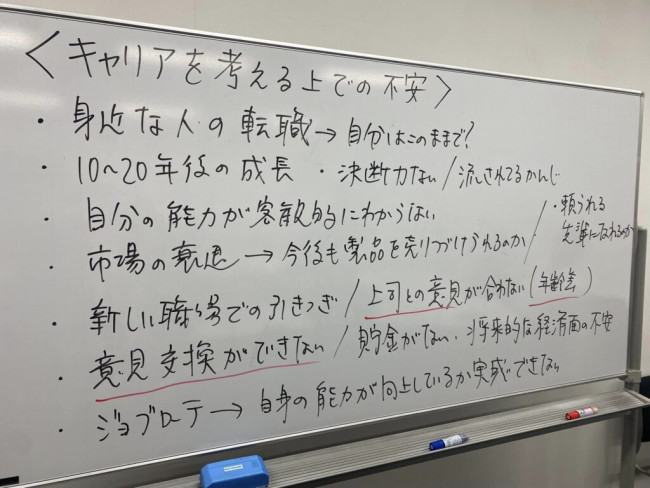 ＜キャリアを考える上での不安＞
・身近な人の転職→自分はこのままで?
・10〜20年後の成長 ・決断力ない/流されてるかんじ
・自分の能力が客観的にわからない
/・頼られる
先輩になれるのか
・市場の衰退→今後も製品を売りつづけられるのか
・新しい職場での引きつぎ/上司との意見が合わない(年齢差)
・意見交換ができない/貯金がない・将来的な経済面の不安
・ジョブローテ→自身の能力が向上しているか実感できない